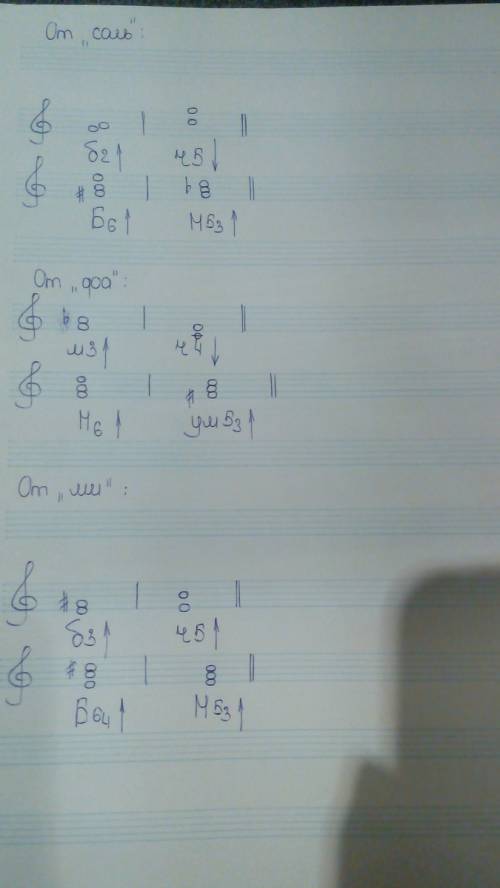 От "соль":
б2↑ ч5↓
Б6↑ М53↑
От "фа":
м3↑ ч4↓
М6↑ ум53↑
От "ми":
б3↑ ч5↑
Б64↑ М53↑